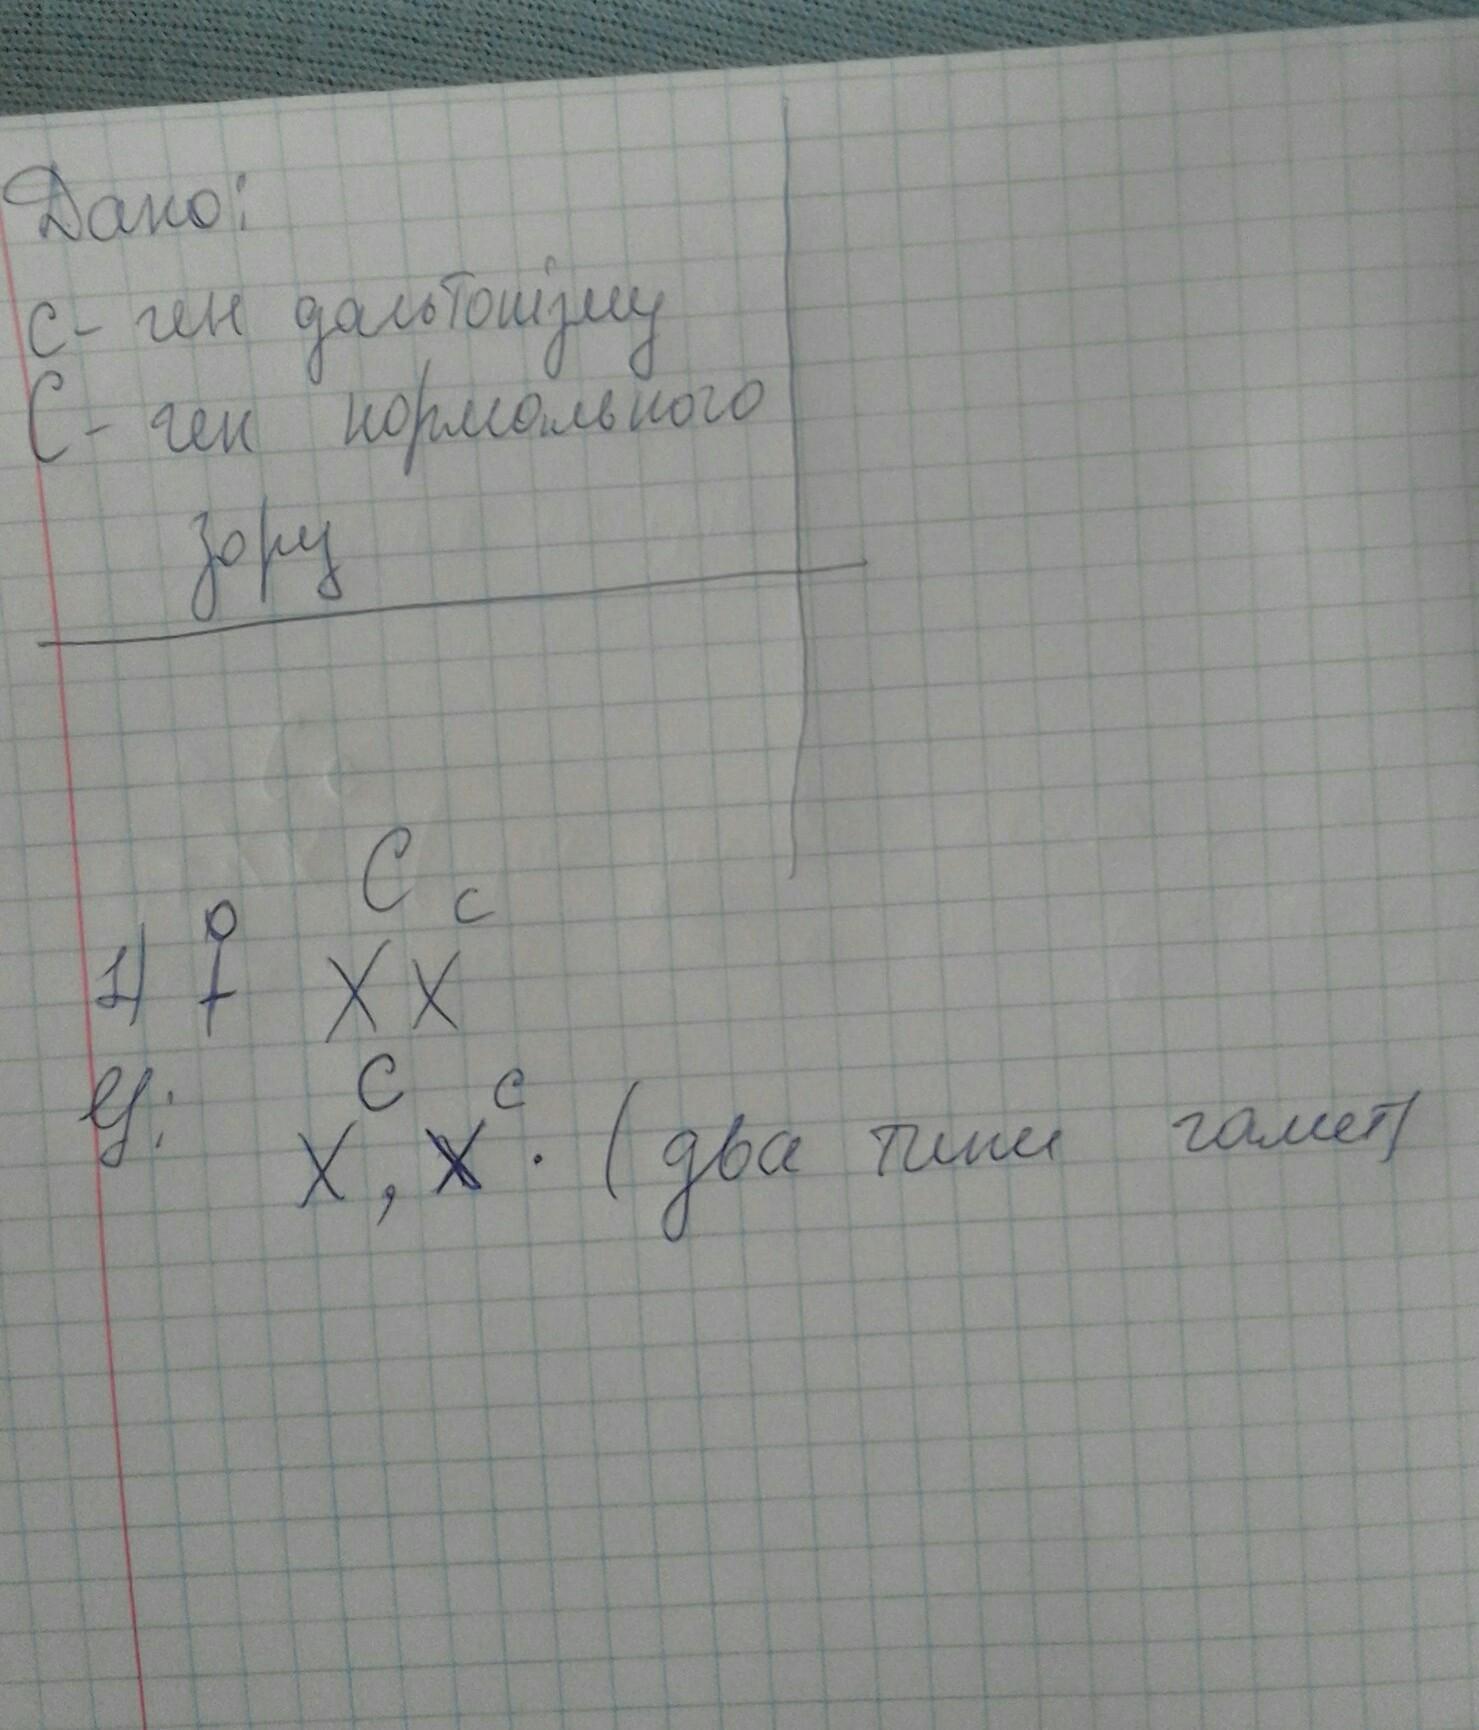 Дано:
с - ген дальтонізму
С - ген нормального
зору
С с
1) ♀ Х Х
С с
G: Х , Х . (два типи гамет)